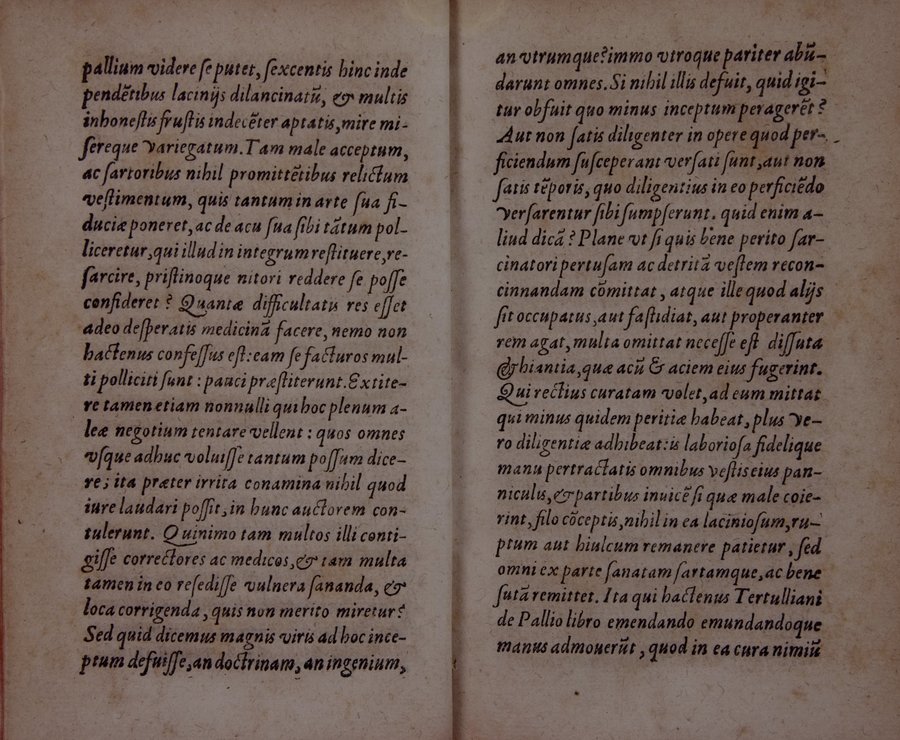 pallium videre se putet, sexcentis hinc inde
pendētibus lacinijs dilancinatū, & multis
inhonestis frustis indecēter aptatis, mire mi-
sereque variegatum. Tam male acceptum,
ac sartoribus nihil promittētibus relictum
vestimentum, quis tantum in arte sua fi-
duciæ poneret, ac de acu sua sibi tātum pol-
liceretur, qui illud in integrum restituere, re-
sarcire, pristinoque nitori reddere se posse
confideret? Quantæ difficultatis res esset
adeo desperatis medicinā facere, nemo non
hactenus confessus est: eam se facturos mul-
ti polliciti sunt: pauci præstiterunt. Extite-
re tamen etiam nonnulli qui hoc plenum a-
leæ negotium tentare vellent: quos omnes
vsque adhuc voluisse tantum possum dice-
re; ita præter irrita conamina nihil quod
iure laudari possit, in hunc auctorem con-
tulerunt. Quinimo tam multos illi conti-
gisse correctores ac medicos, & tam multa
tamen in eo resedisse vulnera sananda, &
loca corrigenda, quis non merito miretur?
Sed quid dicemus magnis viris ad hoc ince-
ptum defuisse, an doctrinam, an ingenium,
an vtrumque? immo vtroque pariter abū-
darunt omnes. Si nihil illis defuit, quid igi-
tur obfuit quo minus inceptum peragerēt?
Aut non satis diligenter in opere quod per-
ficiendum susceperant versati sunt, aut non
satis tēporis, quo diligentius in eo perficiēdo
versarentur sibi sumpserunt. quid enim a-
liud dicā? Plane vt si quis bene perito sar-
cinatori pertusam ac detritā vestem recon-
cinnandam cōmittat, atque ille quod alijs
sit occupatus, aut fastidiat, aut properanter
rem agat, multa omittat necesse est dissuta
& hiantia, quæ acū & aciem eius fugerint.
Qui rectius curatam volet, ad eum mittat
qui minus quidem peritiæ habeat, plus ve-
ro diligentiæ adhibeat: is laboriosa fidelique
manu pertractatis omnibus vestis eius pan-
niculis, & partibus inuicē si quæ male coie-
rint, filo cōceptis, nihil in ea laciniosum, ru-
ptum aut hiulcum remanere patietur, sed
omni ex parte sanatam sartamque, ac bene
sutā remittet. Ita qui hactenus Tertulliani
de Pallio libro emendando emundandoque
manus admouerūt, quod in ea cura nimiū